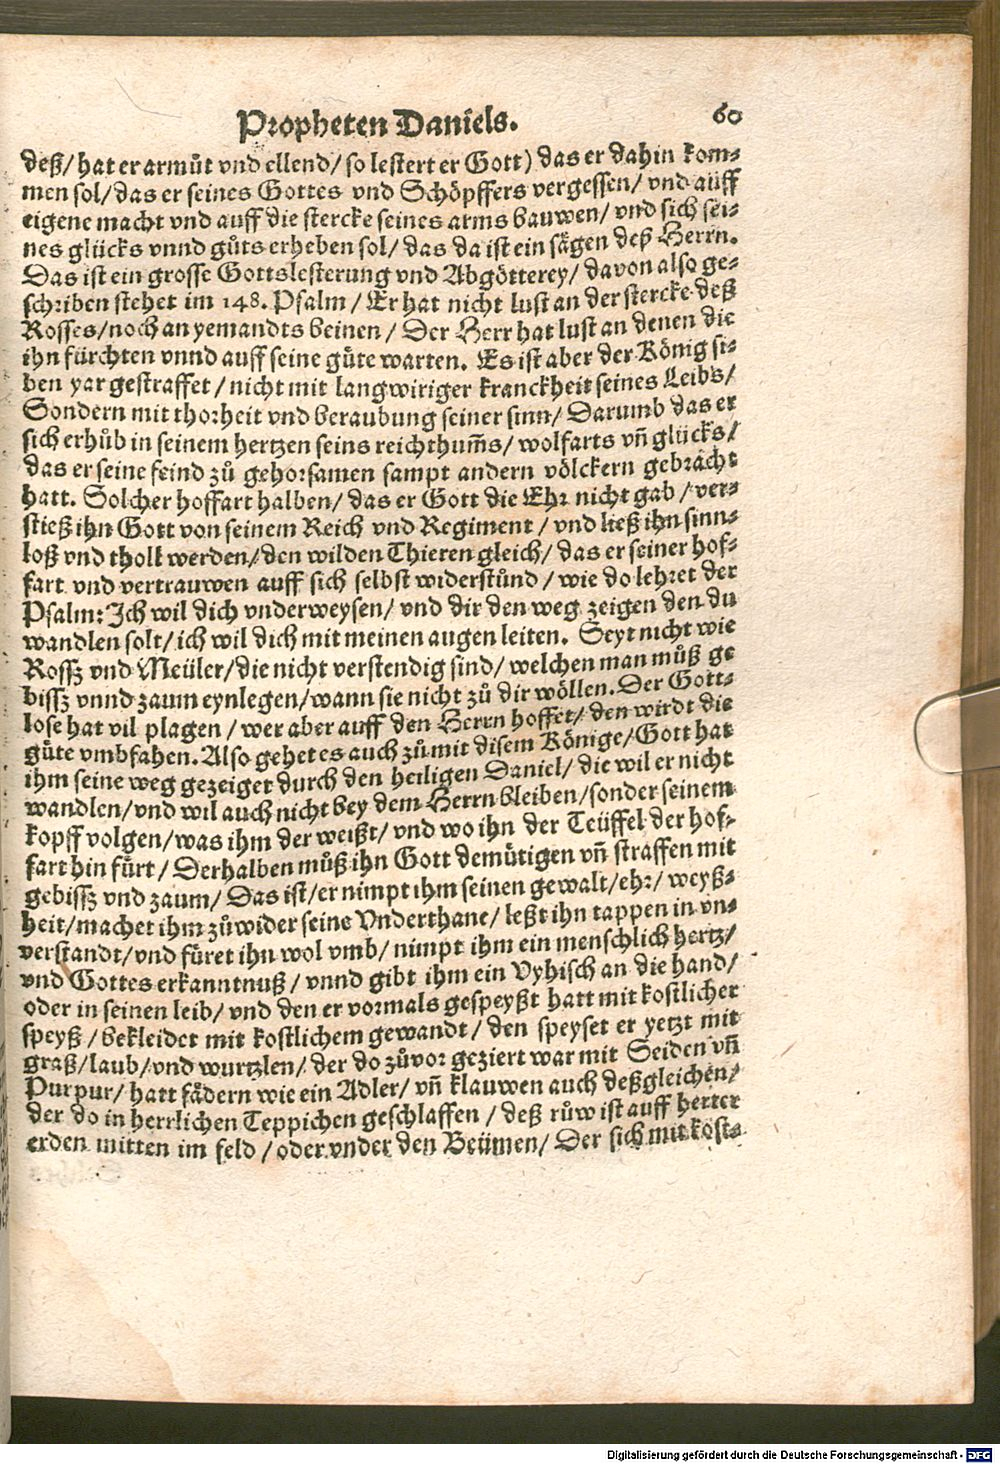 Propheten Daniels. 60
deß/ hat er armůt vnd ellend/ so lestert er Gott) das er dahin kom⸗
men sol/ das er seines Gottes vnd Schöpffers vergessen/ vnd auff
eigene macht vnd auff die stercke seines arms bauwen/ vnd sich sei⸗
nes glücks vnnd gůts erheben sol/ das da ist ein sägen deß Herrn.
Das ist ein grosse Gottslesterung vnd Abgötterey/ davon also ge⸗
schriben stehet im 148. Psalm/ Er hat nicht lust an der stercke deß
Rosses/ noch an yemandts beinen/ Der Herr hat lust an denen die
ihn fürchten vnnd auff seine güte warten. Es ist aber der König si⸗
ben yar gestraffet/ nicht mit langwiriger kranckheit seines Leibs/
Sondern mit thorheit vnd beraubung seiner sinn/ Darumb das er
sich erhůb in seinem hertzen seins reichthum̃s/ wolfarts vn̄ glücks/
das er seine feind zů gehorsamen sampt andern völckern gebracht
hatt. Solcher hoffart halben/ das er Gott die Ehr nicht gab/ ver⸗
stieß ihn Gott von seinem Reich vnd Regiment/ vnd ließ ihn sinn⸗
loß vnd tholl werden/ den wilden Thieren gleich/ das er seiner hof⸗
fart vnd vertrauwen auff sich selbst widerstůnd/ wie do lehret der
Psalm: Ich wil dich vnderweysen/ vnd dir den weg zeigen den du
wandlen solt/ ich wil dich mit meinen augen leiten. Seyt nicht wie
Rossz vnd Meüler/ die nicht verstendig sind/ welchen man můß ge
bissz vnnd zaum eynlegen/ wann sie nicht zů dir wöllen. Der Gott⸗
lose hat vil plagen/ wer aber auff den Herrn hoffet/ den wirdt die
güte vmbfahen. Also gehet es auch zů mit disem Könige/ Gott hat
ihm seine weg gezeiget durch den heiligen Daniel/ die wil er nicht
wandlen/ vnd wil auch nicht bey dem Herrn bleiben/ sonder seinem
kopff volgen/ was ihm der weißt/ vnd wo ihn der Teüffel der hof⸗
fart hin fürt/ Derhalben můß ihn Gott demütigen vn̄ straffen mit
gebissz vnd zaum/ Das ist/ er nimpt ihm seinen gewalt/ ehr/ weyß⸗
heit/ machet ihm zůwider seine Vnderthane/ leßt ihn tappen in vn⸗
verstandt/ vnd füret ihn wol vmb/ nimpt ihm ein menschlich hertz/
vnd Gottes erkanntnuß/ vnnd gibt ihm ein Vyhisch an die hand/
oder in seinen leib/ vnd den er vormals gespeyßt hatt mit kostlicher
speyß/ bekleidet mit kostlichem gewandt/ den speyset er yetzt mit
graß/ laub/ vnd wurtzlen/ der do zůvor geziert war mit Seiden vn̄
Purpur/ hatt fädern wie ein Adler/ vn̄ klauwen auch deßgleichen/
der do in herrlichen Teppichen geschlaffen/ deß růw ist auff herter
erden mitten im feld/ oder vnder den Beümen/ Der sich mit kost⸗
Digitalisierung gefördert durch die Deutsche Forschungsgemeinschaft - DFG